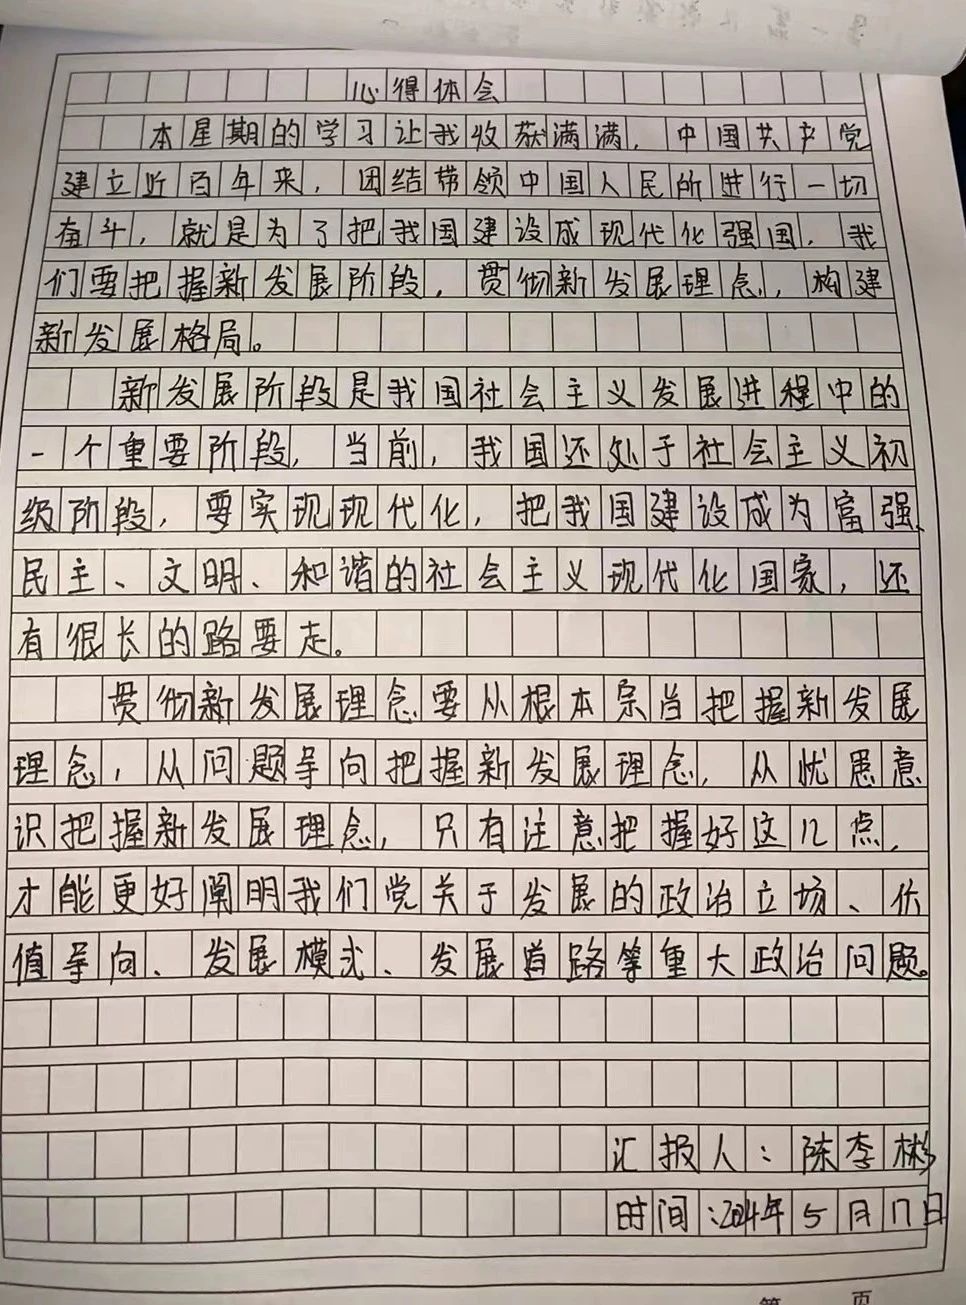 心得体会
本星期的学习让我收获满满，中国共产党
建立近百年来，团结带领中国人民所进行一切
奋斗，就是为了把我国建设成现代化强国，我
们要把握新发展阶段，贯彻新发展理念，构建
新发展格局。
新发展阶段是我国社会主义发展进程中的
一个重要阶段，当前，我国还处于社会主义初
级阶段，要实现现代化，把我国建设成为富强、
民主、文明、和谐的社会主义现代化国家，还
有很长的路要走。
贯彻新发展理念要从根本宗当把握新发展
理念，从问题导向把握新发展理念，从忧患意
识把握新发展理念，只有注意把握好这几点，
才能更好阐明我们党关于发展的政治立场、价
值导向、发展模式、发展道路等重大政治问题。
汇报人：陈李彬
时间：2024年5月17日
第 页